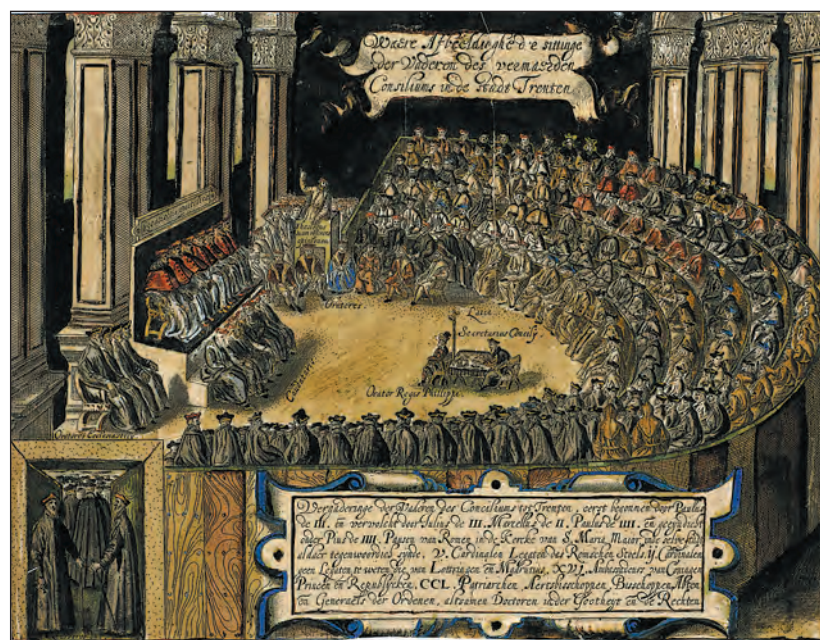 Waere Afbeeldinghe d'e sittinge
der Vaderen des vermaerden
Consiliums in de Stadt Trenten
Oratores
Laici
Secretarius Concilÿ
Orator Regis Philippi
Oratores Ecclesiastici
Vergaderinge der Vaderen des Conciliums tot Trenten, eerst begonnen door Paulus
de III. en vervolcht door Julius de III. Marcellus de II. Paulus de IIII. en geeyndicht
onder Pius de IIII. Pausen van Romen in de Kercke van S. Maria Maior
aldaer tegenwoordich synde, V. Cardinalen Legaten des Romschen Stoels. ij. Cardinalen
geen Legaten te weten die van Lottringen en Madrutius, XVJ. Ambassadeurs van Coningen
Princen en Republycken, CCL. Patriarchen Aertsbisschoppen, Bisschoppen, Abten
en Generaels der Ordenen, altsamen Doctoren inder Godtheyt en de Rechten